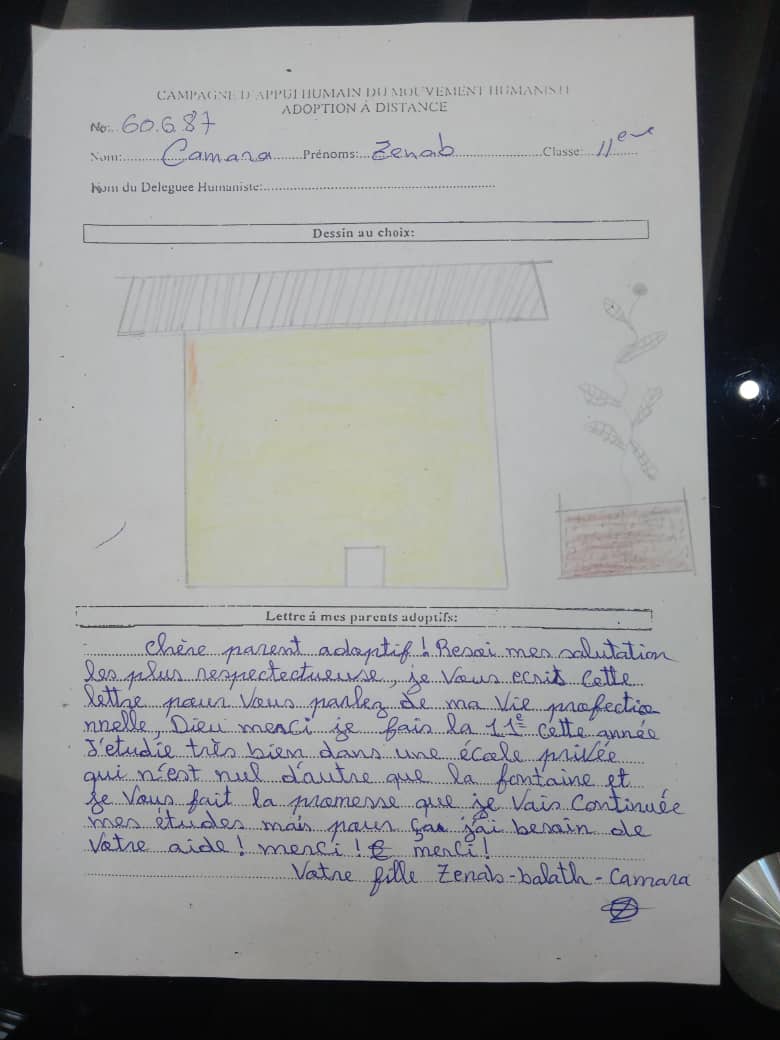 CAMPAGNE D'APPUI HUMAIN DU MOUVEMENT HUMANISTE
ADOPTION À DISTANCE
No:..60.6.87
Nom:............Camara......Prénoms:...Zenab..................Classe:..11ere
Nom du Deleguee Humaniste:......................................................
Dessin au choix:
Lettre á mes parents adoptifs:
chère parent adoptif ! Resoi mes salutation
les plus respectectueuse, je Vous ecris cette
lettre pour Vous parlez de ma Vie profectio
nnelle, Dieu merci je fais la 11e cette année
J'etudie très bien dans une école privée
qui n'est nul d'autre que la fontaine et
je Vous fait la promesse que je Vais Continuée
mes études mais pour ça j'ai besoin de
Votre aide ! merci ! merci !
Votre fille Zenab-balath-Camara